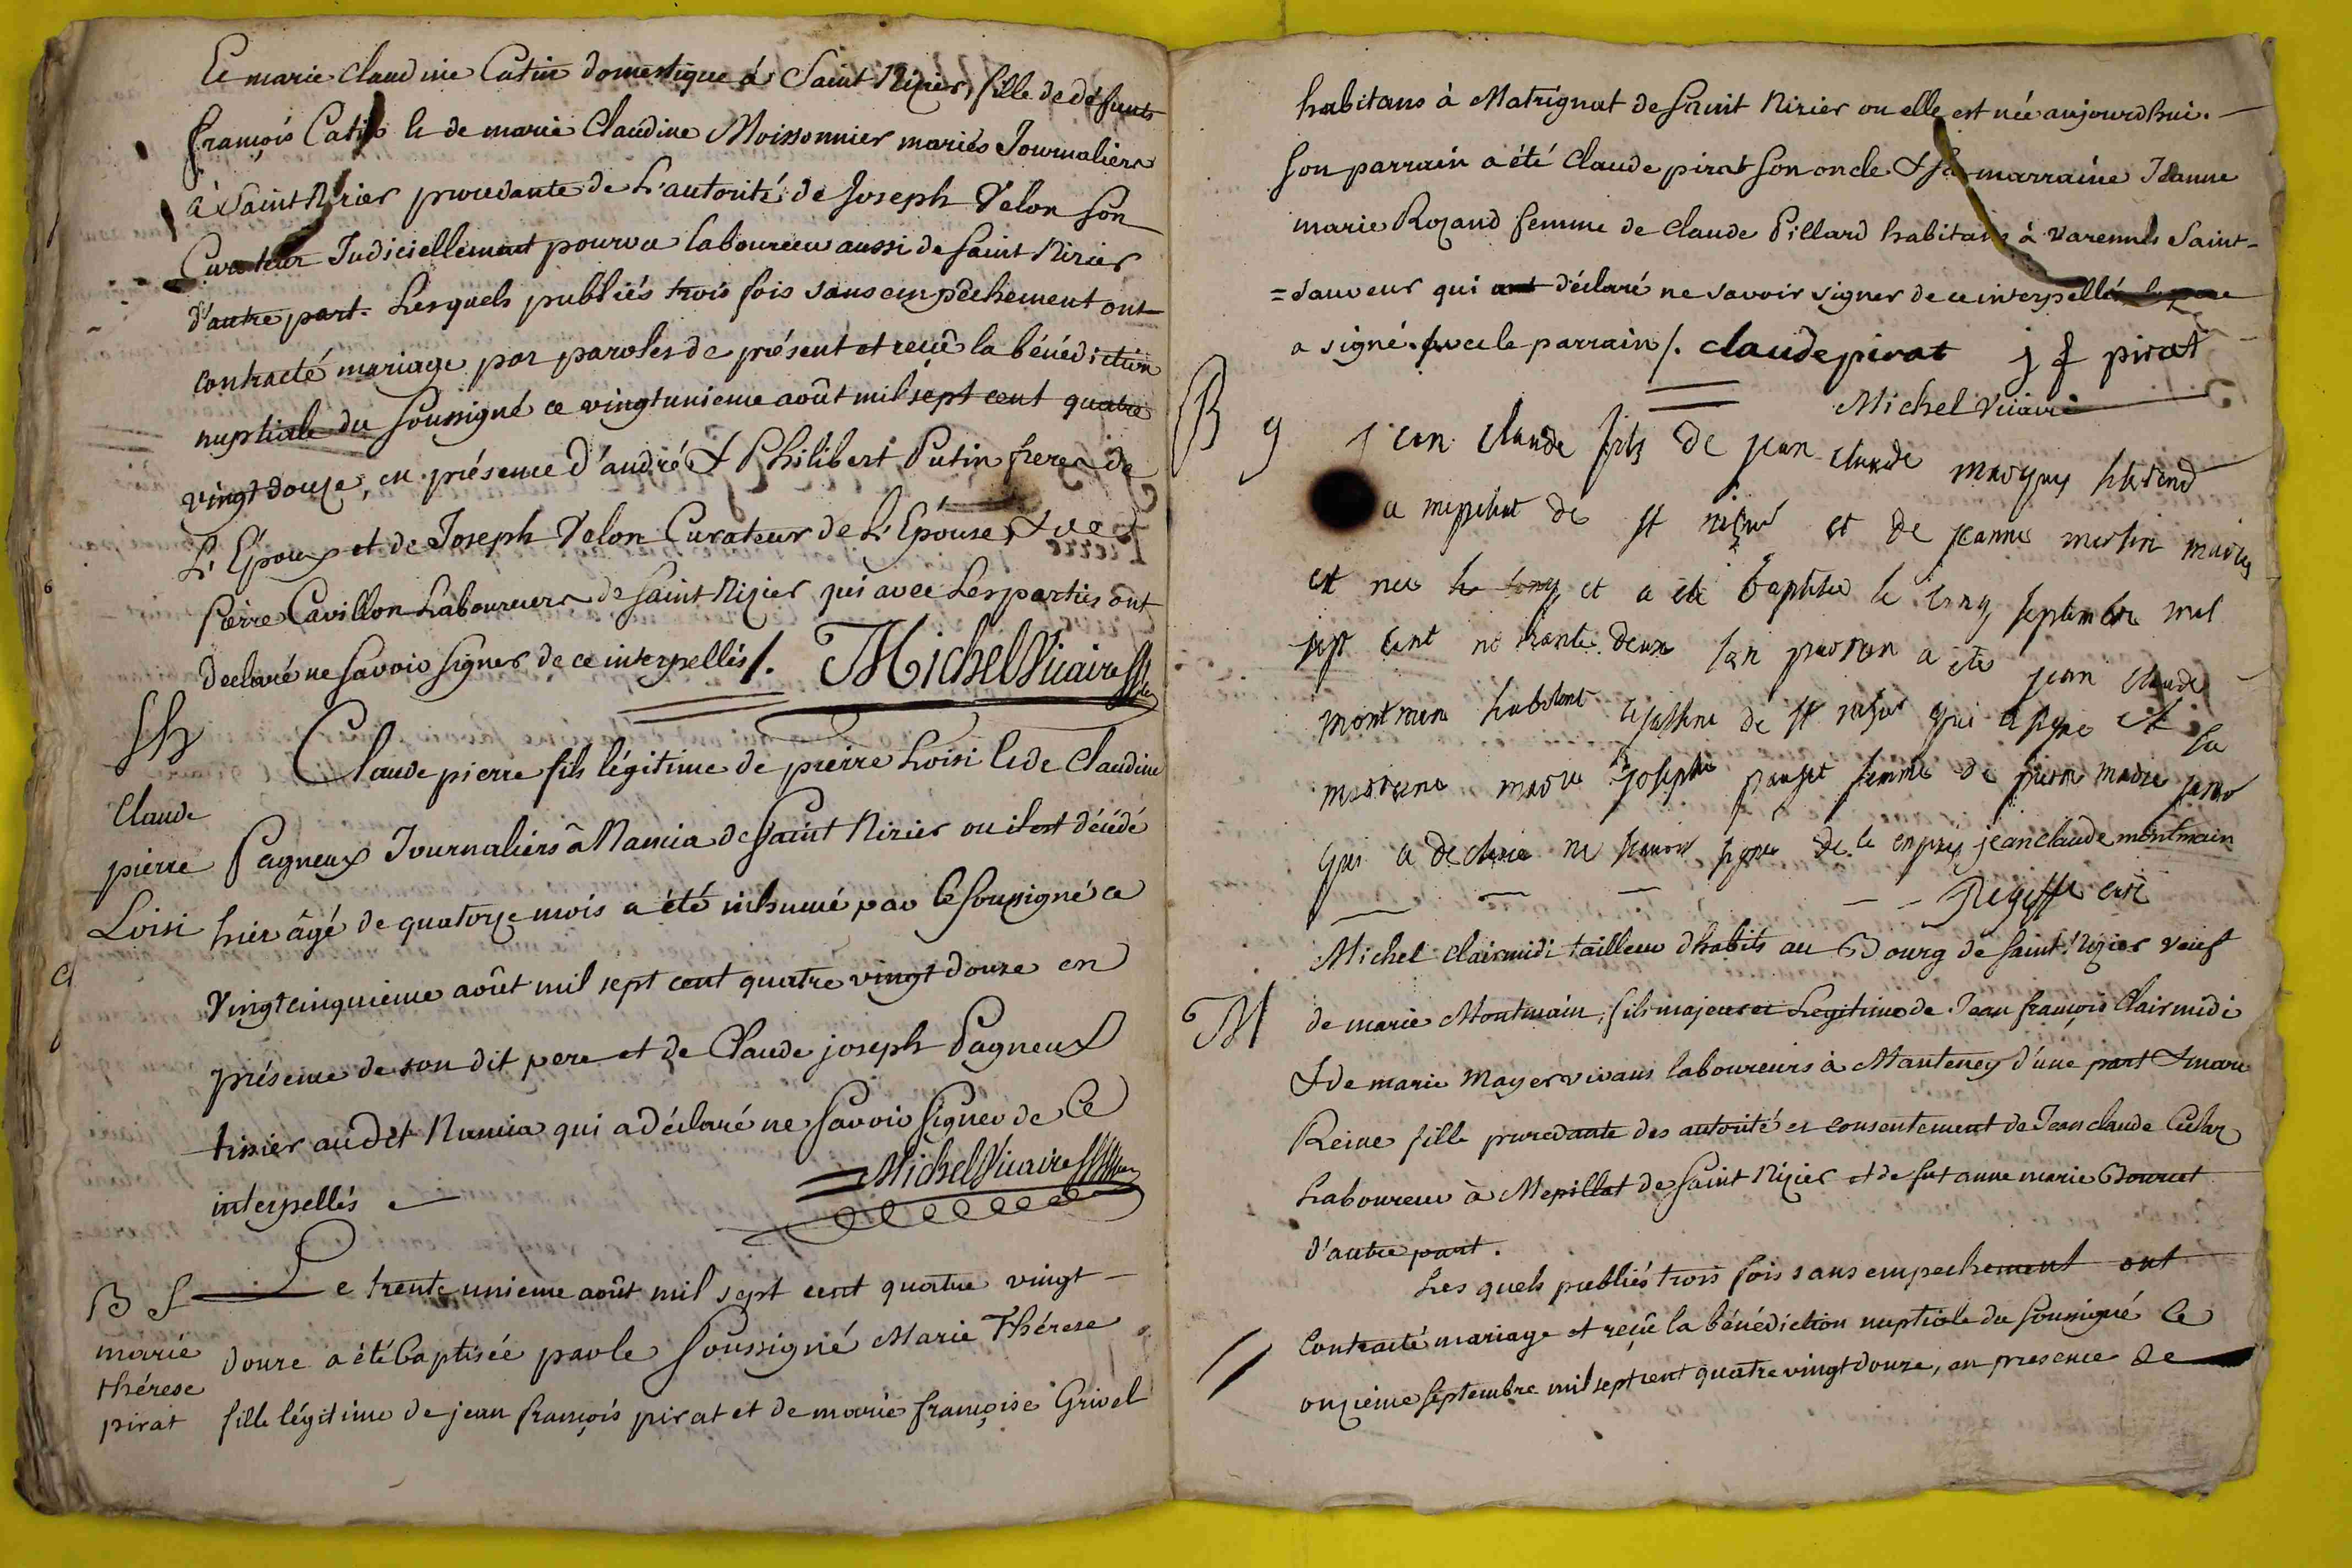 Et marie claudine Catin domestique à Saint Nizier, fille de défunts
françois Catin & de marie Claudine Moissonnier mariés Journaliers
à Saint Nizier procedante de L'autorité de Joseph Velon Son
Curateur Judiciellement pourvu laboureur aussi de Saint Nizier
d'autre part. Lesquels publiés trois fois sans empêchement ont
contracté mariage par paroles de présent et reçû la bénédiction
nuptiale du Soussigné ce vingtunieme août mil sept cent quatre
vingt douze, en présence d'andré & Philibert Putin freres de
L'Epoux et de Joseph Velon Curateur de L'Epouse, & de
Pierre Cavillon Laboureurs de Saint Nizier qui avec les parties ont
declaré ne Savoir Signer de ce interpellés /. Michel Vicaire
Sh
Claude
pierre
Loisi
Claude pierre fils légitime de pierre Loisi & de Claudine
Pagneux Journaliers à Namia de Saint Nizier ou il est décédé
hier âgé de quatorze mois a été inhumé par le Soussigné ce
Vingt cinquieme août mil sept cent quatre vingt douze en
présence de son dit pere et de Claude joseph Pagneux
tissier au dit Namia qui a déclaré ne Savoir Signer de Ce
interpellés
Michel Vicaire
B
marie
thérese
pirat
Le trente unieme août mil sept cent quatre vingt
douze a été baptisée par le Soussigné Marie Thérese
fille légitime de jean françois pirat et de marie françoise Grivel
habitans à Matrignat de Saint Nizier ou elle est née aujourdhui.
Son parrain a été Claude pirat Son oncle & sa marraine Jeanne
marie Rozand femme de Claude Pillard habitans à Varennes Saint
= Sauveur qui ont déclaré ne savoir signer de ce interpellés
a signé avec le parrain /. claude pirat j f pirat
Michel Vicaire
B 9
jean claude fils de jean claude
a mepilliat de st nizier et de jeanne merlin maries
est nee et a ete baptisee le cinq septembre mil
sept cent nonante deux son parran a ete jean claude
montmain habitant de st nizier qui a signe et sa
marrene marie josephe femme de pierre
qui a declaree ne scavoir signer de ce enquis jean claude montmain
curé
M
Michel clairmidi tailleur d'habits au Bourg de Saint Nizier veuf
de marie Montmain, fils majeur et Legitime de Jean françois Clairmidi
& de marie Mayer vivans laboureurs à Mantenay d'une part & marie
Reine fille procedante des autorité et consentement de Jean claude
Laboureur à Mepillat de Saint Nizier et de fut anne marie Bourcet
d'autre part.
Les quels publiés trois fois sans empechement ont
Contracté mariage et reçû la bénédiction nuptiale du Soussigné Ce
onzieme Septembre mil sept cent quatre vingt douze, en presence de